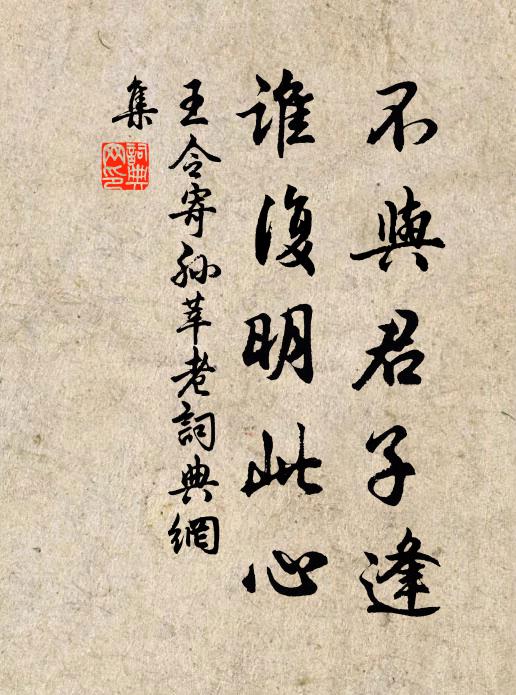 不與君子逢
誰復明此心
王令寄孫莘老詞典網
集
詞典網印